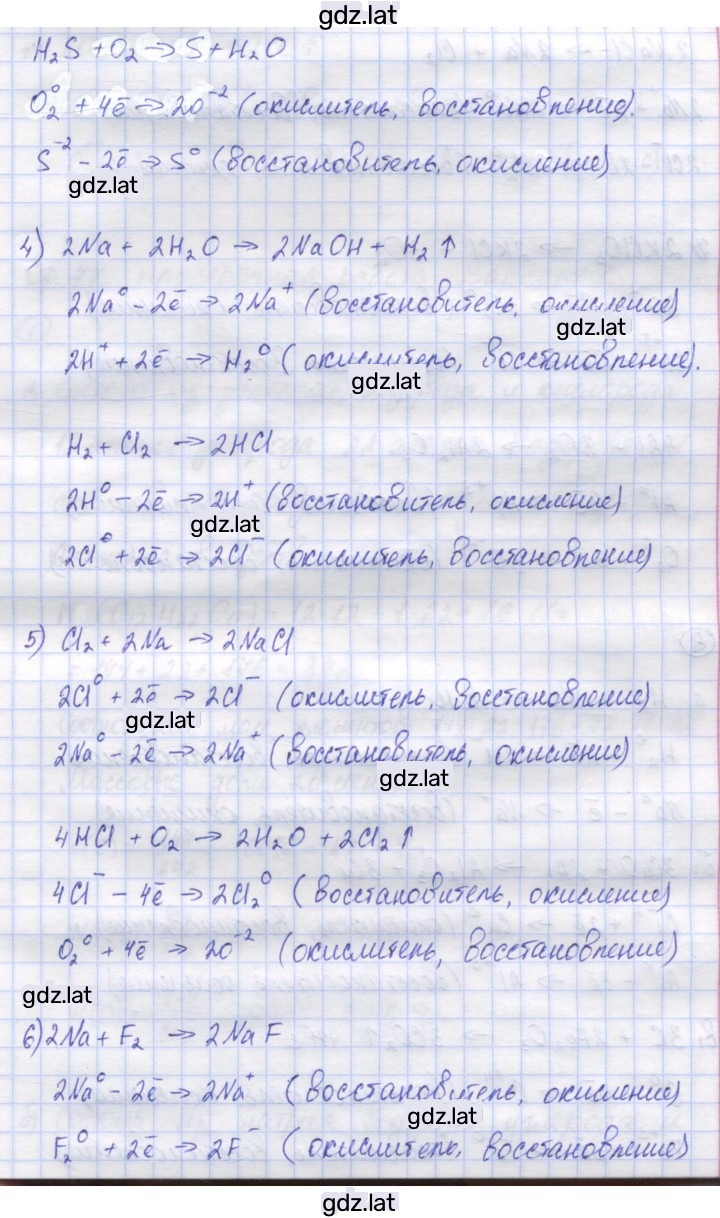 gdz.lat
H₂S + O₂ → S + H₂O
O₂⁰ + 4ē → 2O⁻² (окислитель, восстановление).
S⁻² - 2ē → S⁰ (восстановитель, окисление)
gdz.lat
4) 2Na + 2H₂O → 2NaOH + H₂↑
2Na⁰ - 2ē → 2Na⁺ (восстановитель, окисление)
gdz.lat
2H⁺ + 2ē → H₂⁰ (окислитель, восстановление).
gdz.lat
H₂ + Cl₂ → 2HCl
2H⁰ - 2ē → 2H⁺ (восстановитель, окисление)
gdz.lat
2Cl⁰ + 2ē → 2Cl⁻ (окислитель, восстановление)
5) Cl₂ + 2Na → 2NaCl
2Cl⁰ + 2ē → 2Cl⁻ (окислитель, восстановление)
gdz.lat
2Na⁰ - 2ē → 2Na⁺ (восстановитель, окисление)
gdz.lat
4HCl + O₂ → 2H₂O + 2Cl₂↑
4Cl⁻ - 4ē → 2Cl₂⁰ (восстановитель, окисление)
O₂⁰ + 4ē → 2O⁻² (окислитель, восстановление)
gdz.lat
6) 2Na + F₂ → 2NaF
2Na⁰ - 2ē → 2Na⁺ (восстановитель, окисление)
gdz.lat
F₂⁰ + 2ē → 2F⁻ (окислитель, восстановление)
gdz.lat